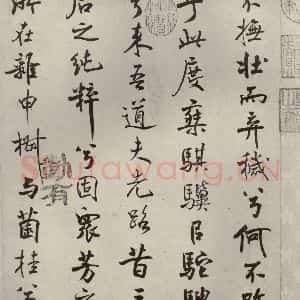 不撫壯而弃穢兮何不
乎此度椉騏驥㠯馳騁
兮来吾道夫先路昔三
后之純粹兮固衆芳之
所在雜申椒与菌桂兮
勤有
Shufawang.cn